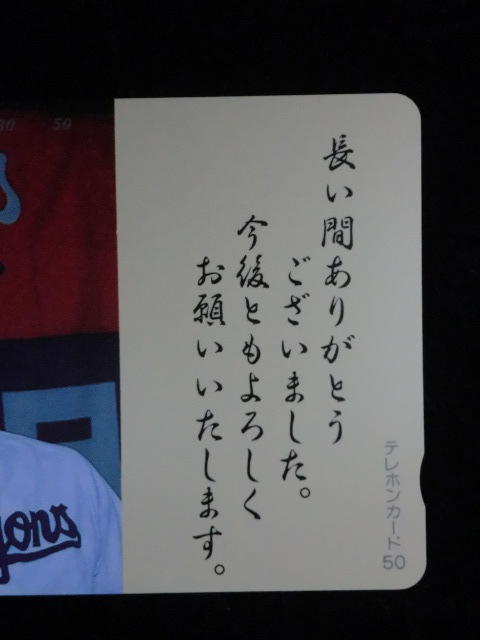 長い間ありがとう
ございました。
今後ともよろしく
お願いいたします。
テレホンカード50
50